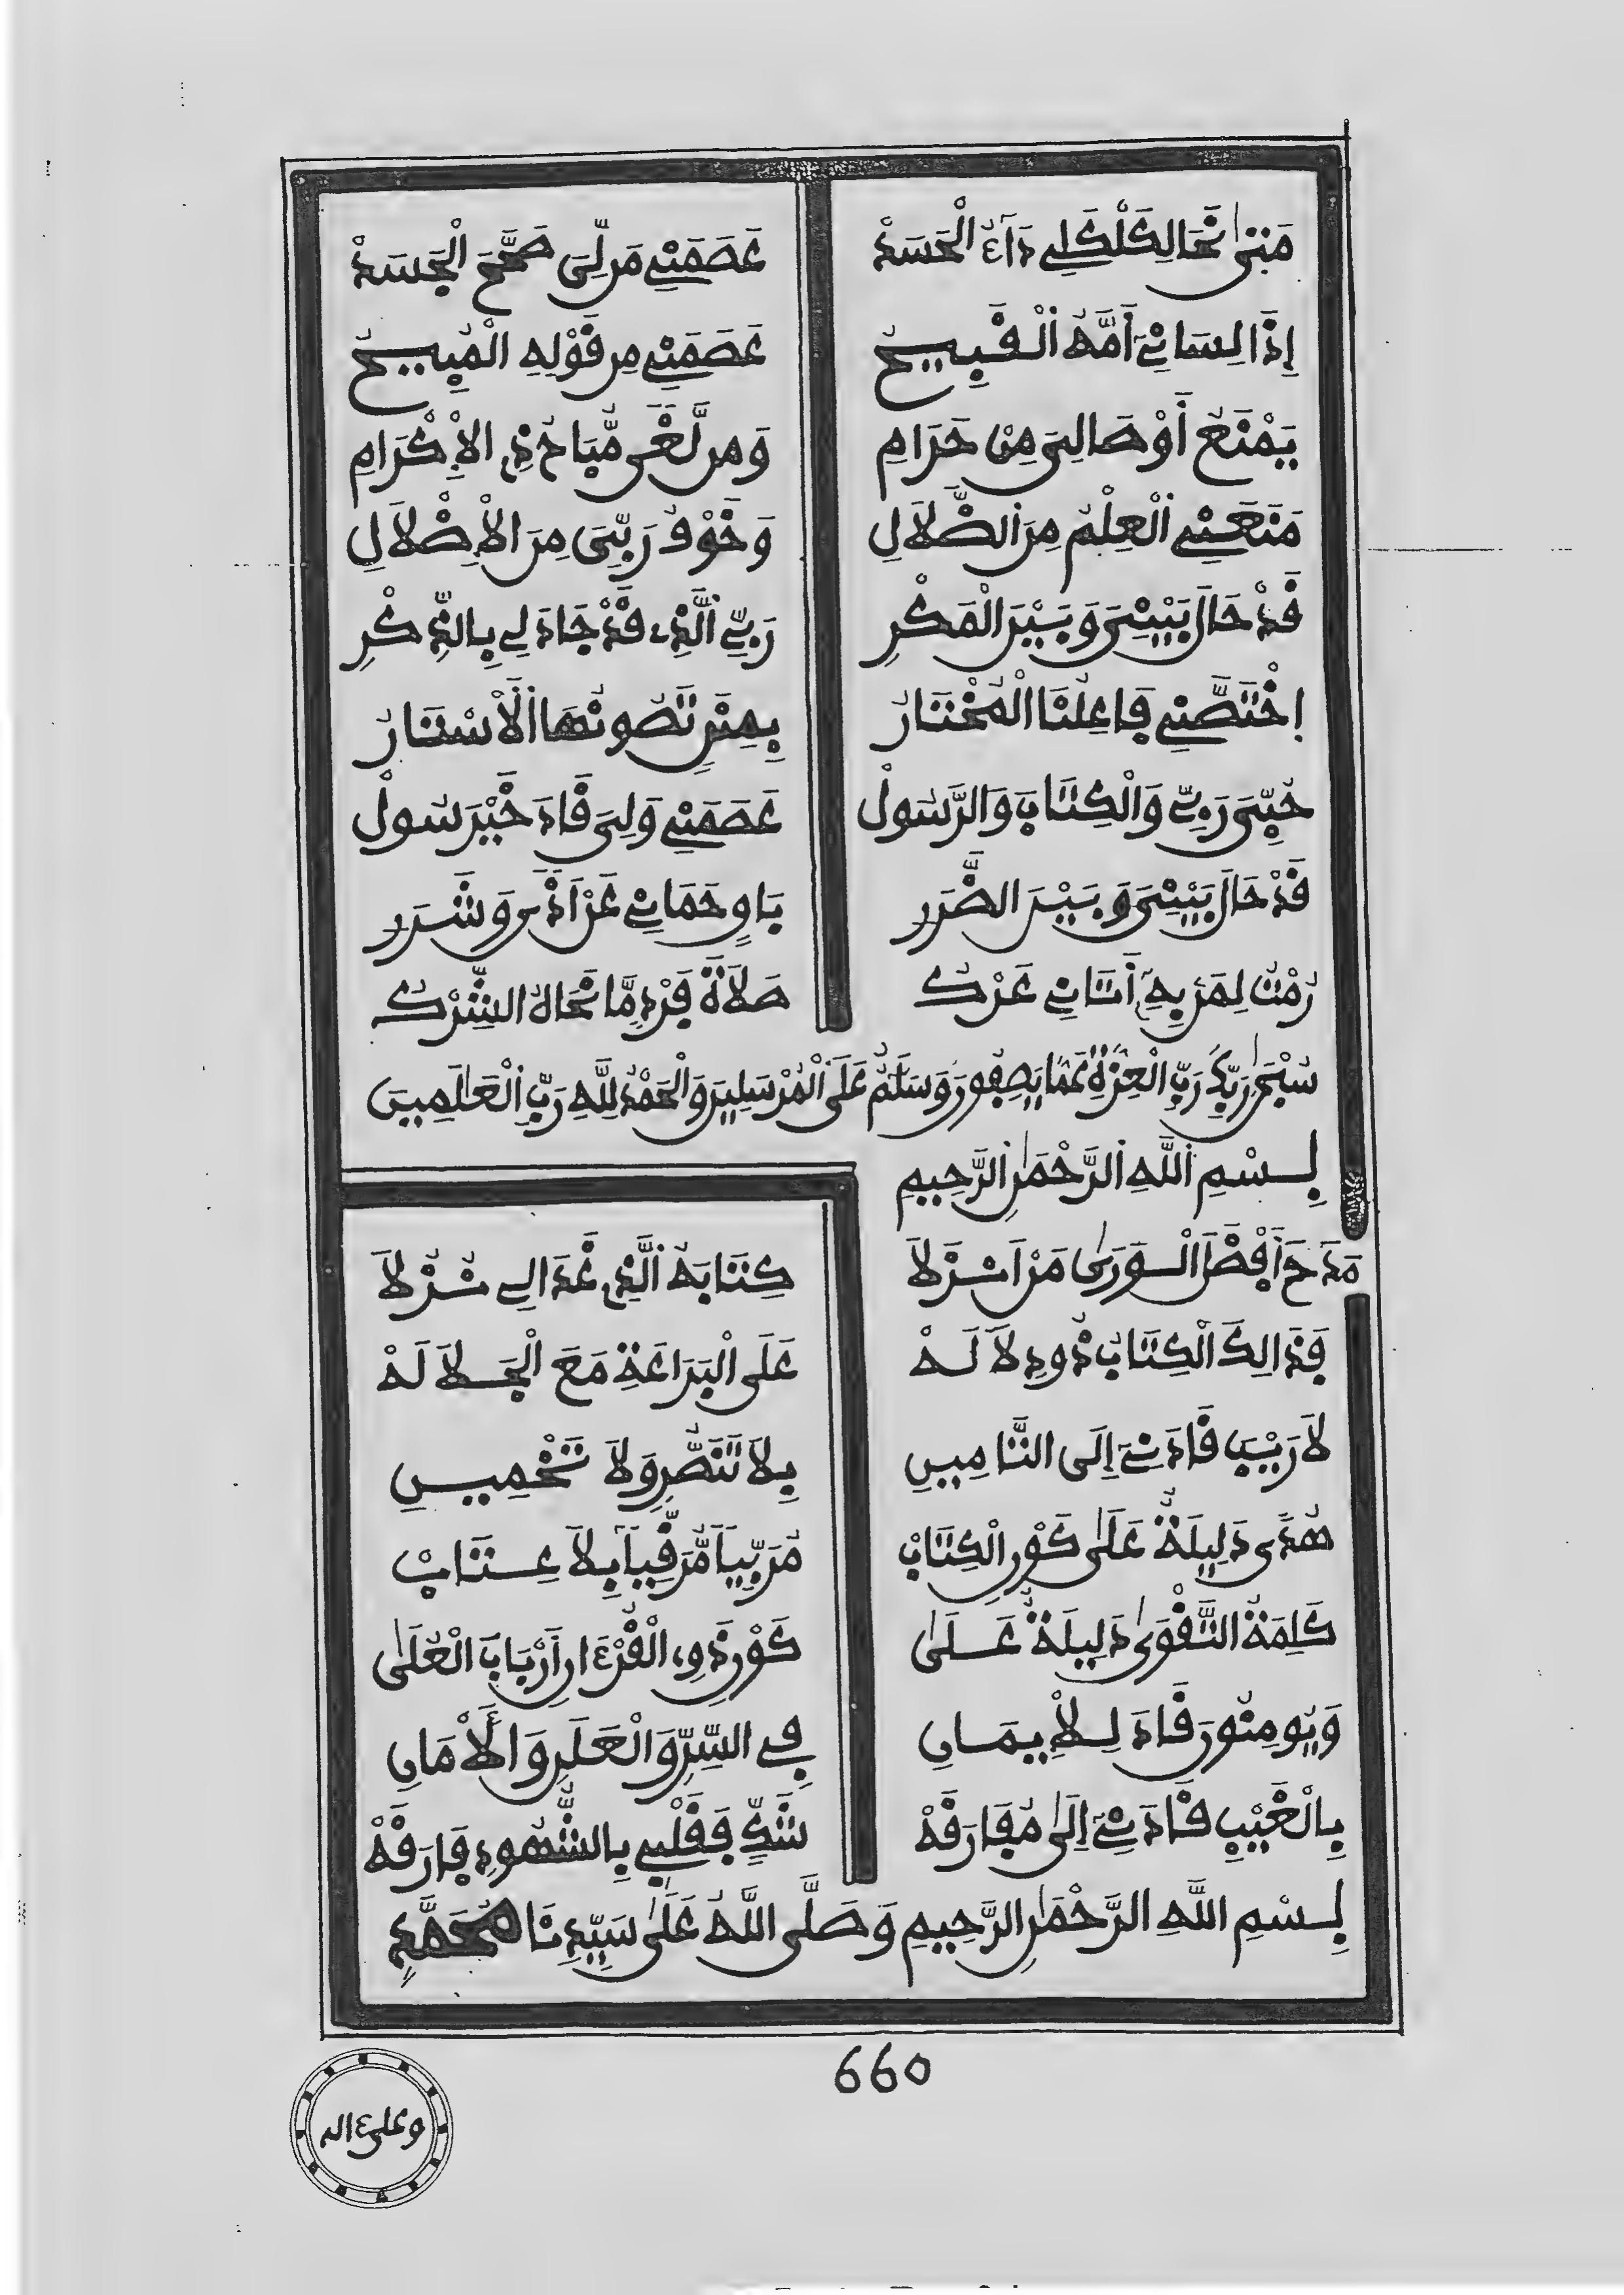 مَتَىٰ نَحَا لِكَلْكَلِي دَآءُ الْحَسَدْ عَصَمَنِي مَن لِّيَ صَحَّحَ الْجَسَدْ
إِذَا لِسَانِيَ أَمَّهُ الْقَبِيحُ عَصَمَنِي مِن قَوْلِهِ الْمُبِيحُ
يَمْنَعُ أَوْصَالِيَ مِنْ حَرَامِ وَمِن لَّغَى مُّبَاحُ ذِي الْإِكْرَامِ
مَنَعَنِي الْعِلْمُ مِنَ الضَّلَالِ وَخَوْفُ رَبِّيَ مِنَ الْإِضْلَالِ
قَدْ حَالَ بَيْنِيَ وَبَيْنَ الْمَكْرِ رَبِّي الَّذِي قَدْ جَادَ لِي بِالذِّكْرِ
إِخْتَصَّنِي فَاعِلُنَا الْمُخْتَارُ بِمِنَنٍ تَصُونُهَا الْأَسْتَارُ
حُبِّيَ رَبِّي وَالْكِتَابَ وَالرَّسُولْ عَصَمَنِي وَلِيَ قَادَ خَيْرَ سُولْ
قَدْ حَالَ بَيْنِيَ وَبَيْنَ الضَّرَرِ بَاقٍ حَمَانِي عَنْ أَذًى وَشَرَرِ
رُمْتُ لِمَن بِهِ أَتَانِي عَرْكُ صَلَاةَ فَرْدٍ مَّا نَحَاهُ الشِّرْكُ
سُبْحَٰنَ رَبِّكَ رَبِّ الْعِزَّةِ عَمَّا يَصِفُونَ وَسَلَٰمٌ عَلَى الْمُرْسَلِينَ وَالْحَمْدُ لِلَّهِ رَبِّ الْعَٰلَمِينَ
بِسْمِ اللَّهِ الرَّحْمَٰنِ الرَّحِيمِ
مَدَحَ أَفْضَلَ الْوَرَىٰ مَنْ أَنْزَلَا كِتَابَهُ الَّذِي غَدَا لِي نُزُلَا
فَذَالِكَ الْكِتَابُ ذُو دِلَالَهْ عَلَى الْبَرَاعَةِ مَعَ الْجَلَالَهْ
لَا رَيْبَ قَادَنِيَ إِلَى التَّامِينِ بِلَا تَنَصُّرٍ وَلَا تَخْمِيسِ
هُدًى دَلِيلَةٌ عَلَىٰ كَوْنِ الْكِتَابْ مُرَبِّيًا مُّرَقِّيًا بِلَا عِتَابْ
كَلِمَةُ التَّقْوَىٰ دَلِيلَةٌ عَلَىٰ كَوْنِ ذَوِي الْقُرْءَانِ أَرْبَابَ الْعُلَىٰ
وَيُومِنُونَ قَادَ لِلْإِيمَانِ فِي السِّرِّ وَالْعَلَنِ وَالْأَمَانِ
بِالْغَيْبِ قَادَنِيَ إِلَىٰ مُفَارَقَهْ شَكٍّ فَقَلْبِي بِالشُّهُودِ فَارَقَهْ
بِسْمِ اللَّهِ الرَّحْمَٰنِ الرَّحِيمِ وَصَلَّى اللَّهُ عَلَىٰ سَيِّدِنَا مُحَمَّدٍ
660
وعلىءاله